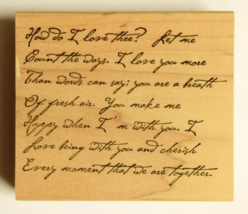 How do I love thee? Let me
Count the ways. I love you more
Than words can say; you are a breath
Of fresh air. You make me
Happy when I m with you. I
Love being with you and cherish
Every moment that we are together.